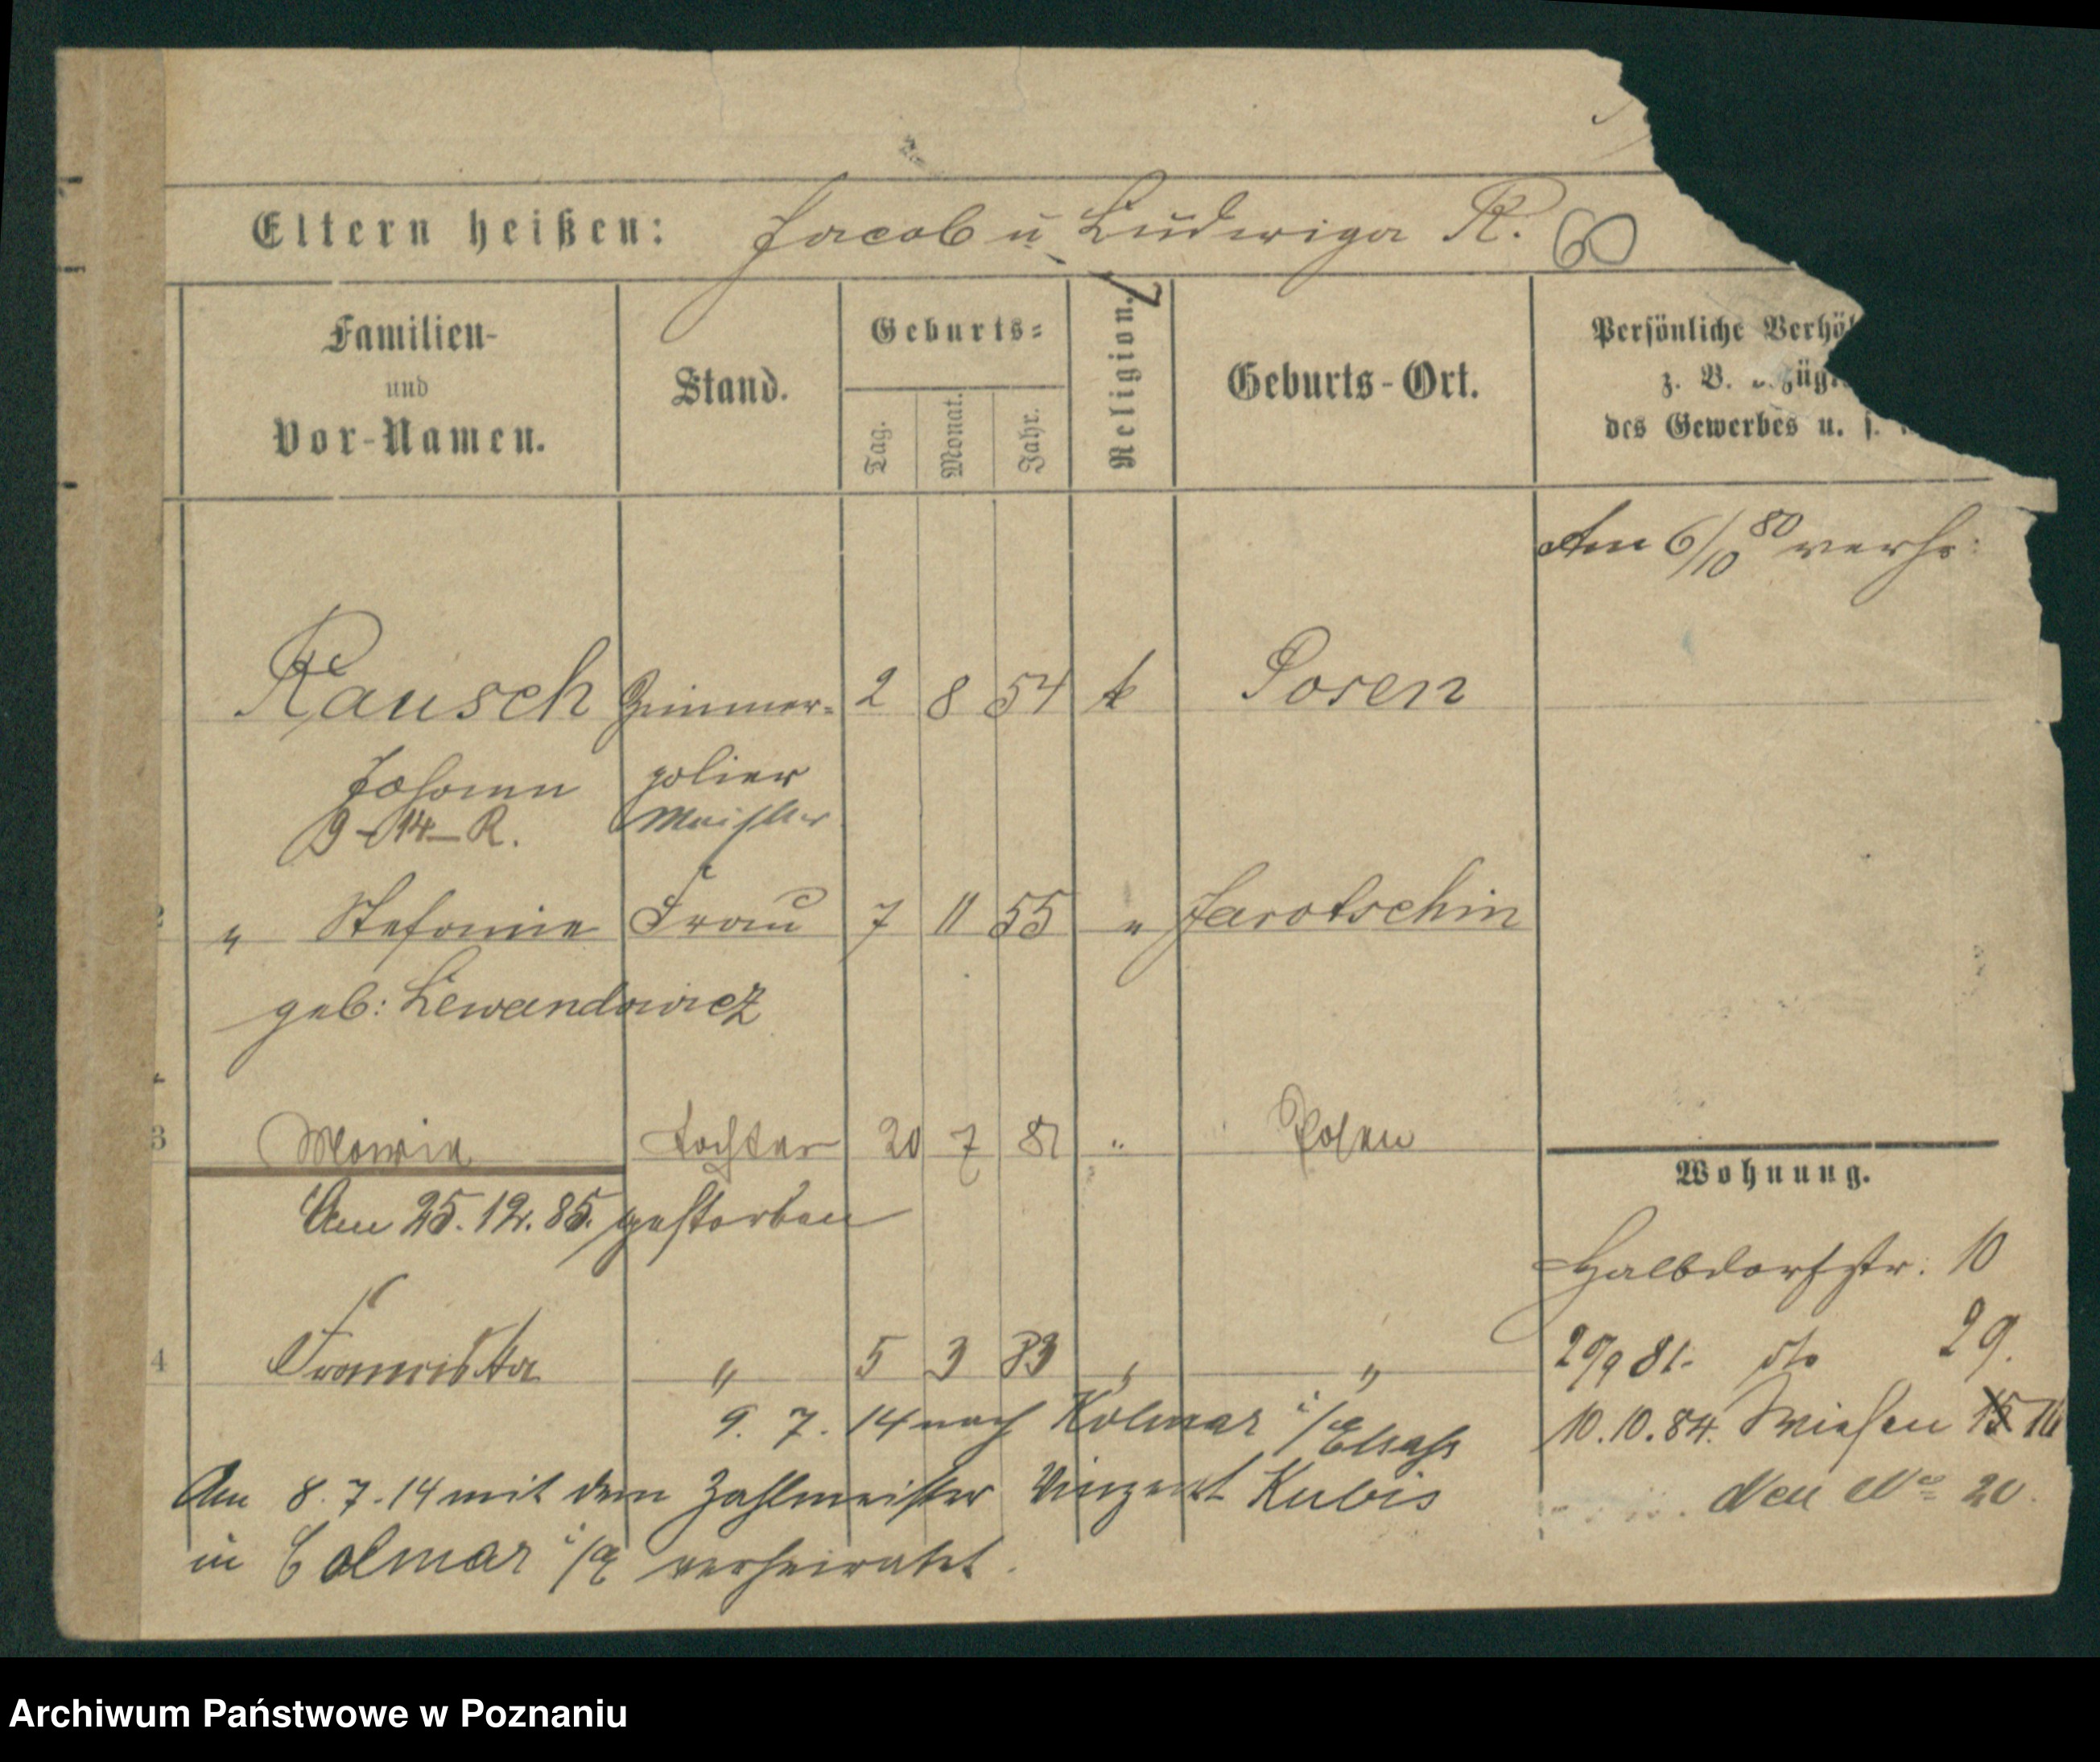 Eltern heißen: Jacob u Ludwiga R. 60
Familien-
und
Vor-Namen.
Stand.
Geburts-
Tag.
Monat.
Jahr.
Religion.
Geburts-Ort.
Persönliche Verhäl
z. B.
des Gewerbes u. s.
Am 6/10 80 verh:
Rausch Zimmer- 2 8 54 k Posen
Johann polier
9-14-R. Meister
2 " Stefanie Frau 7 11 55 " Jarotschin
geb: Lewandowicz
3 Maria Tochter 20 7 81 " Posen
Am 25.12.85. gestorben
4 Franciska " 5 3 83 " "
9. 7. 14 nach Kolmar i/Elsaß
Am 8.7.14 mit dem Zahlmeister Vinzent Kubis
in Colmar i/E verheiratet.
Wohnung.
Halbdorfstr. 10
29/9 81. dto 29.
10.10.84. Wiesen 15 16
Neu No 20.
Archiwum Państwowe w Poznaniu